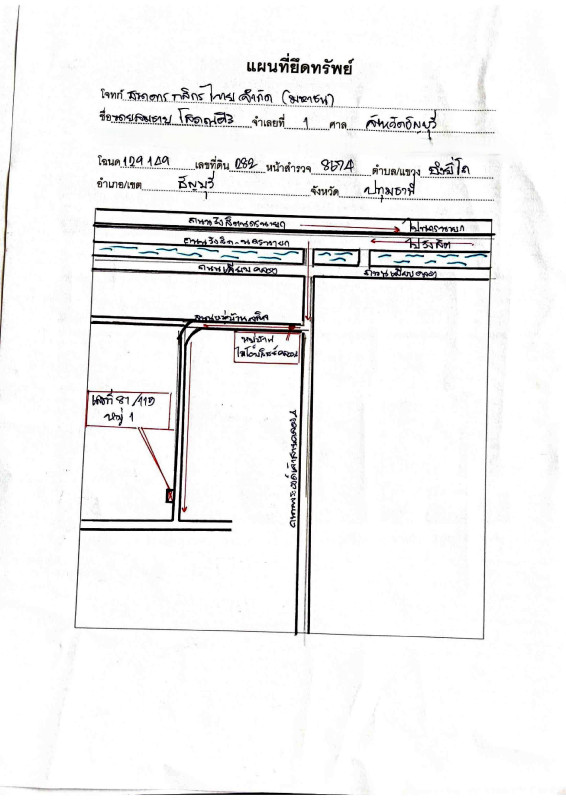 แผนที่ยึดทรัพย์
โจทก์ ธนาคาร กสิกรไทย จำกัด (มหาชน)
ชื่อ จำเลยที่ 1 ศาล จังหวัดธัญบุรี
โฉนด 129149 เลขที่ดิน 282 หน้าสำรวจ 8574 ตำบล/แขวง บึงยี่โถ
อำเภอ/เขต ธัญบุรี จังหวัด ปทุมธานี
ถนนรังสิตนครนายก ไปนครนายก
ถนนรังสิต-นครนายก ไปรังสิต
ถนนเลียบคลอง ถนนเลียบคลอง
หมู่บ้าน
เลขที่ 81/119
หมู่ 1